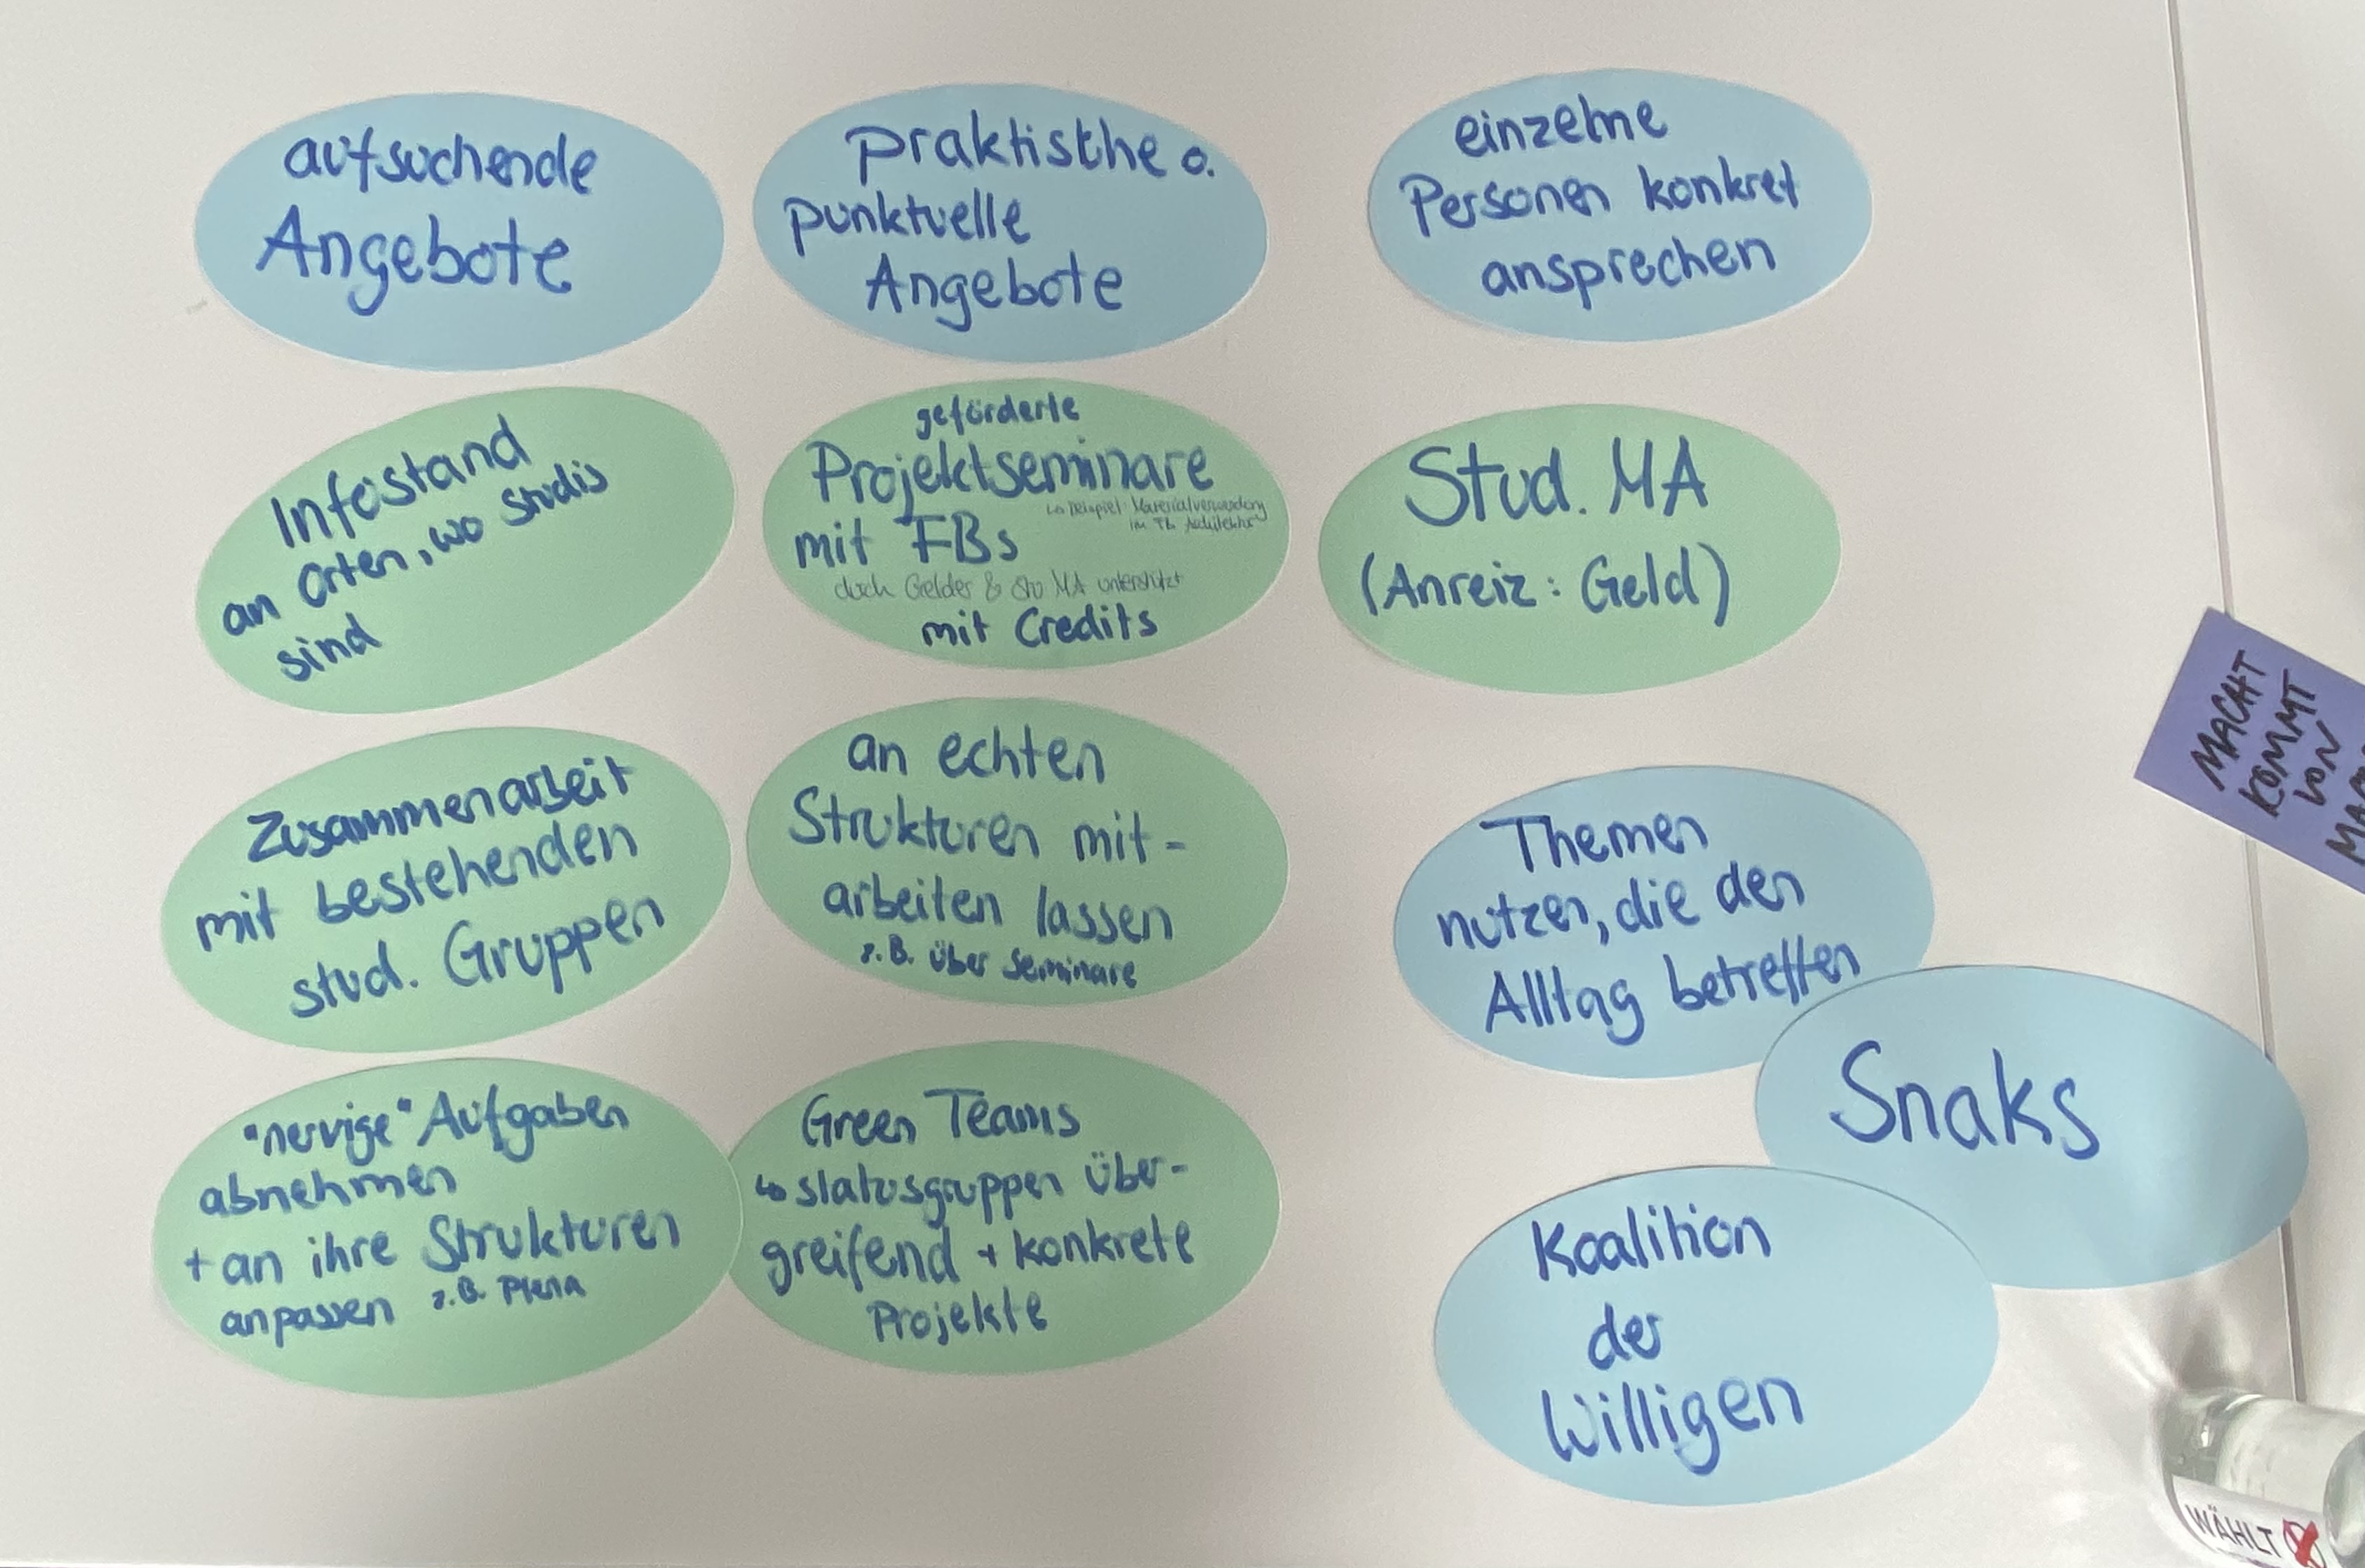 aufsuchende
Angebote
praktische o.
punktuelle
Angebote
einzelne
Personen konkret
ansprechen
Infostand
an Orten, wo Studis
sind
geförderte
Projektseminare
↳ Beispiel: Materialverwendung
im FB Architektur
mit FBs
durch Gelder & Stu MA unterstützt
mit Credits
Stud. MA
(Anreiz: Geld)
Zusammenarbeit
mit bestehenden
stud. Gruppen
an echten
Strukturen mit-
arbeiten lassen
z.B. über Seminare
Themen
nutzen, die den
Alltag betreffen
Snaks
"nervige" Aufgaben
abnehmen
+ an ihre Strukturen
anpassen z.B. Plena
Green Teams
↳ statusgruppen über-
greifend + konkrete
Projekte
Koalition
der
Willigen
MACHT
KOMMT
VON
WÄHLT